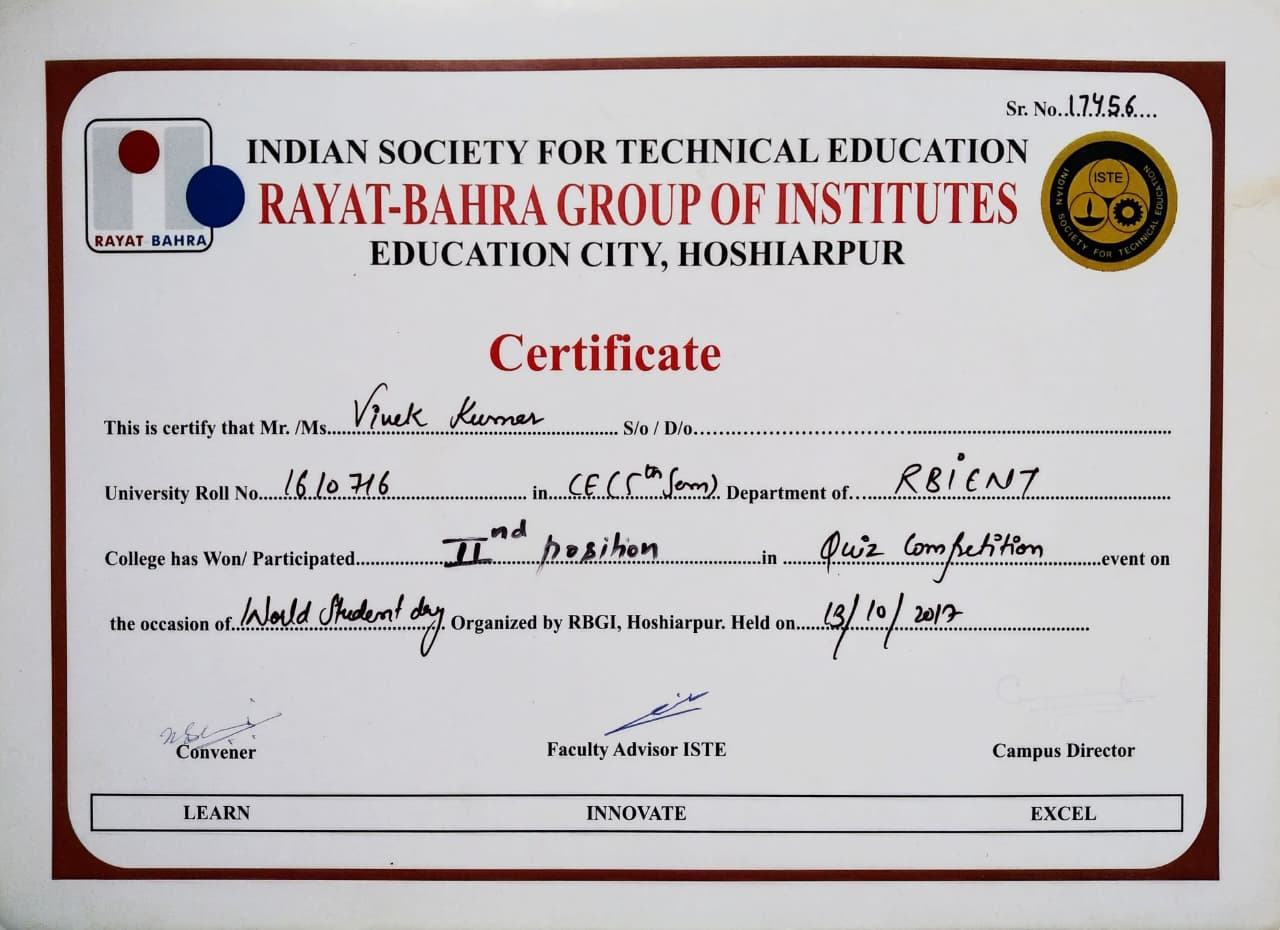 Sr. No..17456....
RAYAT BAHRA
INDIAN SOCIETY FOR TECHNICAL EDUCATION
RAYAT-BAHRA GROUP OF INSTITUTES
EDUCATION CITY, HOSHIARPUR
ISTE
INDIAN SOCIETY FOR TECHNICAL EDUCATION
Certificate
This is certify that Mr. /Ms...Vivek Kumar.......... S/o / D/o..........
University Roll No....1610716.......... in...CE (5th Sem) Department of....RBIENT..........
College has Won/ Participated..........IInd position..........in ......Quiz Competition..........event on
the occasion of..World Student day. Organized by RBGI, Hoshiarpur. Held on.....13/10/2017..........
Convener
Faculty Advisor ISTE
Campus Director
LEARN INNOVATE EXCEL